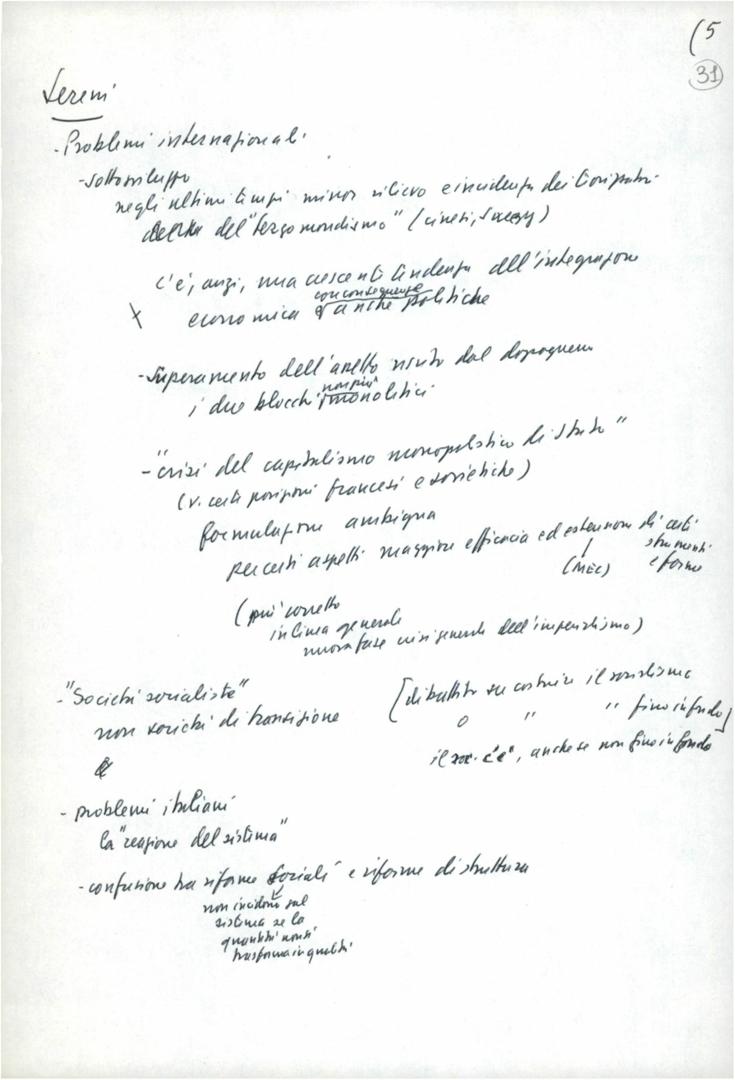 (5
31
Sereni
- Problemi internazionali
- sottosviluppo
negli ultimi tempi minor rilievo e incidenza dei
del "terzomondismo" (cinesi, Sweezy)
c'è, anzi, una crescente tendenza all'integrazione
economica e anche politiche
con conseguenze
- Superamento dell'assetto uscito dal dopoguerra
i due blocchi monolitici
non più
- "crisi del capitalismo monopolistico di stato"
(v. certe posizioni francesi e sovietiche)
formulazione ambigua
per certi aspetti maggiore efficacia ed estensione di certi
strumenti
(MEC) e forme
(più corretto
in linea generale
nuova fase crisi generale dell'imperialismo)
- "Società socialiste" [dibattito su costruire il socialismo
non società di transizione o " " fino in fondo]
il soc. c'è, anche se non fino in fondo
- problemi italiani
la "reazione del sistema"
- confusione tra riforme sociali e riforme di struttura
non incidono sul
sistema se la
quantità non si
trasforma in qualità